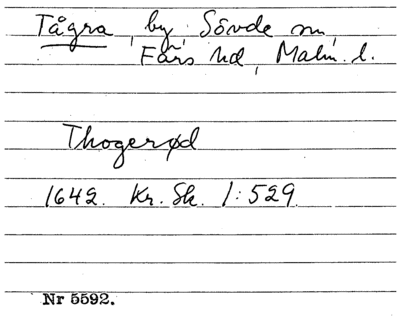 Tågra, by, Sövde sn,
Färs hd, Malm. l.
Thogerød
1642. Kr. Sk. 1:529.
Nr 5592.